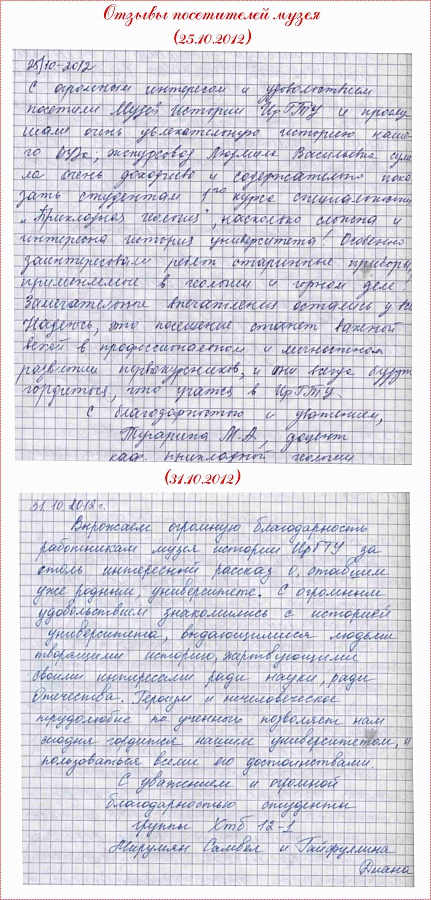 Отзывы посетителей музея
(25.10.2012)
25/10-2012
С огромным интересом и удовольствием
посетили Музей Истории ИрГТУ и прослу
шали очень увлекательную историю наше-
го ВУЗа, экскурсовод Людмила Васильевна суме
ла очень доходчиво и содержательно пока
зать студентам 1го курса специальности
"Прикладная геология", насколько сложна и
интересна история университета! Особенно
заинтересовали ребят старинные приборы,
применяемые в геологии и горном деле.
Замечательные впечатления остались у всех
Надеюсь, это посещение станет важной
вехой в профессиональном и личностном
развитии первокурсников, и они всегда будут
гордиться, что учатся в ИрГТУ.
С благодарностью и уважением,
М.А., доцент
каф. прикладной геологии
(31.10.2012)
31.10.2012г.
Выражаем огромную благодарность
работникам музея истории ИрГТУ за
столь интересный рассказ о, ставшим
уже родным, университете. С огромным
удовольствием знакомились с историей
университета, выдающимися людьми
творящими историю, жертвующими
своими интересами ради науки, ради
Отечества. Героизм и нечеловеческое
трудолюбие ученного позволяет нам
сегодня гордится нашим университетом, и
пользоваться всеми его достоинствами.
С уважением и огромной
благодарностью студенты
группы Хтб 12-1
Самвел и Гайфуллина
Диана